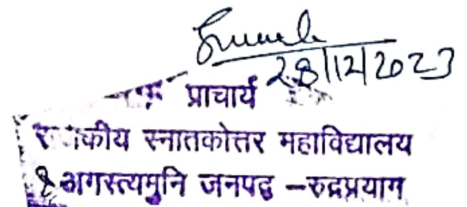 28/12/2023
प्राचार्य
राजकीय स्नातकोत्तर महाविद्यालय
अगस्त्यमुनि जनपद -रुद्रप्रयाग